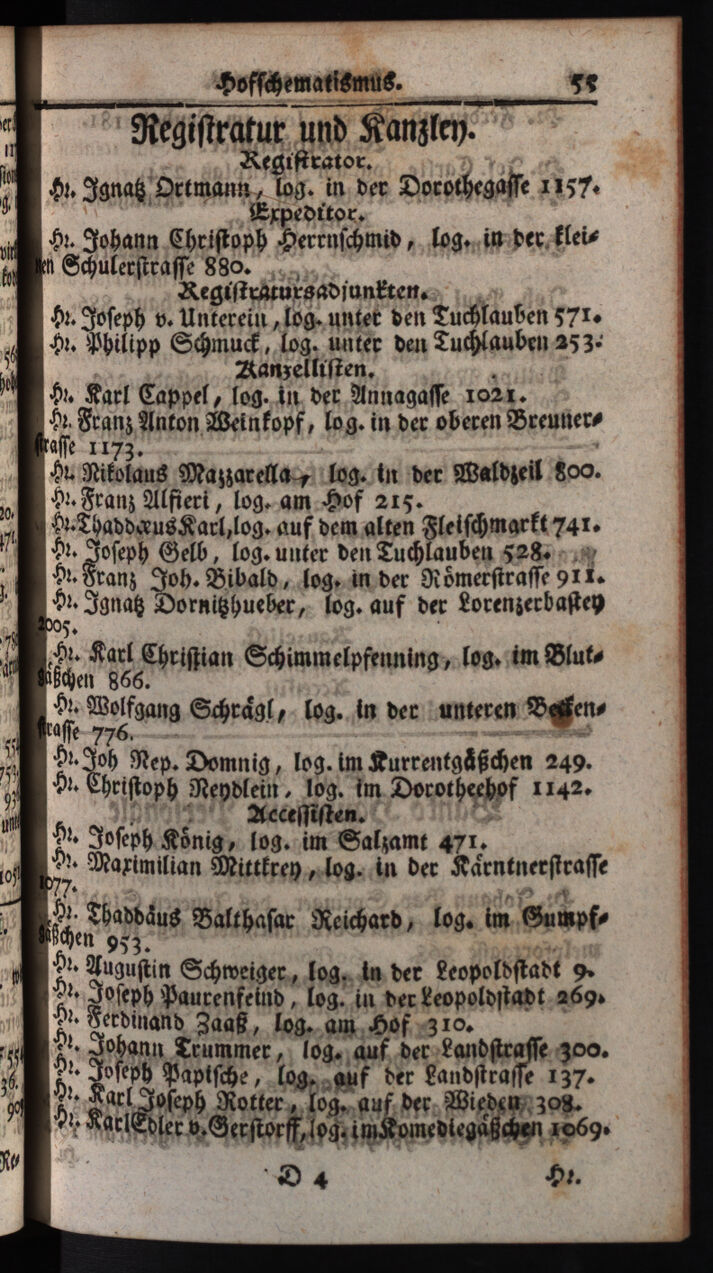 Hofschematismus. 55
Registratur und Kanzley.
Registrator.
Hr. Ignatz Ortmann, log. in der Dorothegasse 1157.
Expeditor.
Hr. Johann Christoph Herrnschmid, log. in der klei-
nen Schulerstrasse 880.
Registratursadjunkten.
Hr. Joseph v. Unterein, log. unter den Tuchlauben 571.
Hr. Philipp Schmuck, log. unter den Tuchlauben 253.
Kanzellisten.
Hr. Karl Cappel, log. in der Annagasse 1021.
Hr. Franz Anton Weinkopf, log. in der oberen Breuner-
strasse 1173.
Hr. Nikolaus Mazzarella, log. in der Waldzeil 800.
Hr. Franz Alfieri, log. am Hof 215.
Hr. Thaddæus Karl, log. auf dem alten Fleischmarkt 741.
Hr. Joseph Gelb, log. unter den Tuchlauben 528.
Hr. Franz Joh. Bibald, log. in der Römerstrasse 911.
Hr. Ignatz Dornitzhueber, log. auf der Lorenzerbastey
2005.
Hr. Karl Christian Schimmelpfenning, log. im Blut-
gäßchen 866.
Hr. Wolfgang Schrägl, log. in der unteren Becken-
strasse 776.
Hr. Joh Nep. Domnig, log. im Kurrentgäßchen 249.
Hr. Christoph Neydlein, log. im Dorotheehof 1142.
Accessisten.
Hr. Joseph König, log. im Salzamt 471.
Hr. Maximilian Mittkrey, log. in der Kärntnerstrasse
1077.
Hr. Thaddäus Balthasar Reichard, log. im Gumpf-
gäßchen 953.
Hr. Augustin Schweiger, log. in der Leopoldstadt 9.
Hr. Joseph Paurenfeind, log. in der Leopoldstadt 269.
Hr. Ferdinand Zaaß, log. am Hof 310.
Hr. Johann Trummer, log. auf der Landstrasse 300.
Hr. Joseph Papische, log. auf der Landstrasse 137.
Hr. Karl Joseph Rotter, log. auf der Wieden 308.
Hr. Karl Edler v. Gerstorff, log. im Komediegäßchen 1069.
D 4 Hr.